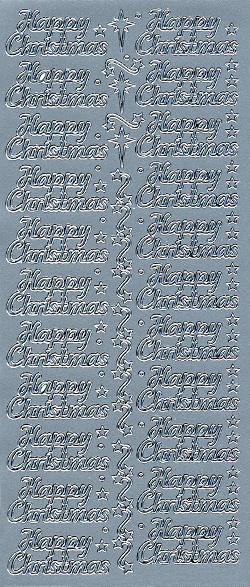 Happy
Christmas
Happy
Christmas
Happy
Christmas
Happy
Christmas
Happy
Christmas
Happy
Christmas
Happy
Christmas
Happy
Christmas
Happy
Christmas
Happy
Christmas
Happy
Christmas
Happy
Christmas
Happy
Christmas
Happy
Christmas
Happy
Christmas
Happy
Christmas
Happy
Christmas
Happy
Christmas
Happy
Christmas
Happy
Christmas
Happy
Christmas
Happy
Christmas